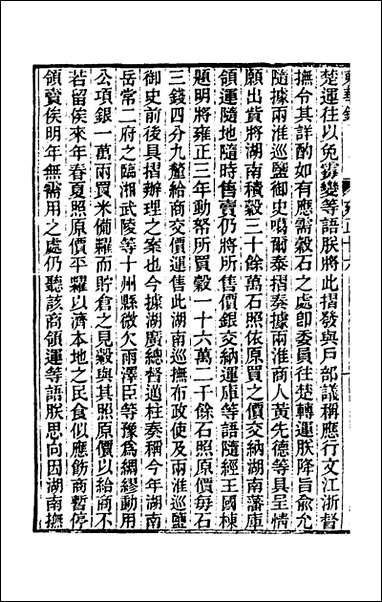 東華錄 雍正十六
楚運往以免霉變等語朕將此摺發與戶部議稱應行文江浙督
撫令其詳酌如有應需穀石之處即委員往楚轉運朕降旨俞允
隨據兩淮巡鹽御史噶爾泰摺奏據兩淮商人黃先德等具呈情
願出貲將湖南積穀三十餘萬石照依原買之價交納湖南藩庫
領運隨地隨時售賣仍將所售價銀交納運庫等語隨經王國棟
題明將雍正三年動帑所買穀一十六萬二千餘石照原價每石
三錢四分九釐給商交價運售此湖南巡撫布政使及兩淮巡鹽
御史前後具摺辦理之案也今據湖廣總督邁柱奏稱今年湖南
岳常二府之臨湘武陵等十州縣微欠雨澤臣等豫為綢繆動用
公項銀一萬兩買米備糶而貯倉之見穀與其照原價以給商不
若留俟來年春夏照原價平糶以濟本地之民食似應飭商暫停
領賣俟明年無需用之處仍聽該商領運等語朕思向因湖南撫